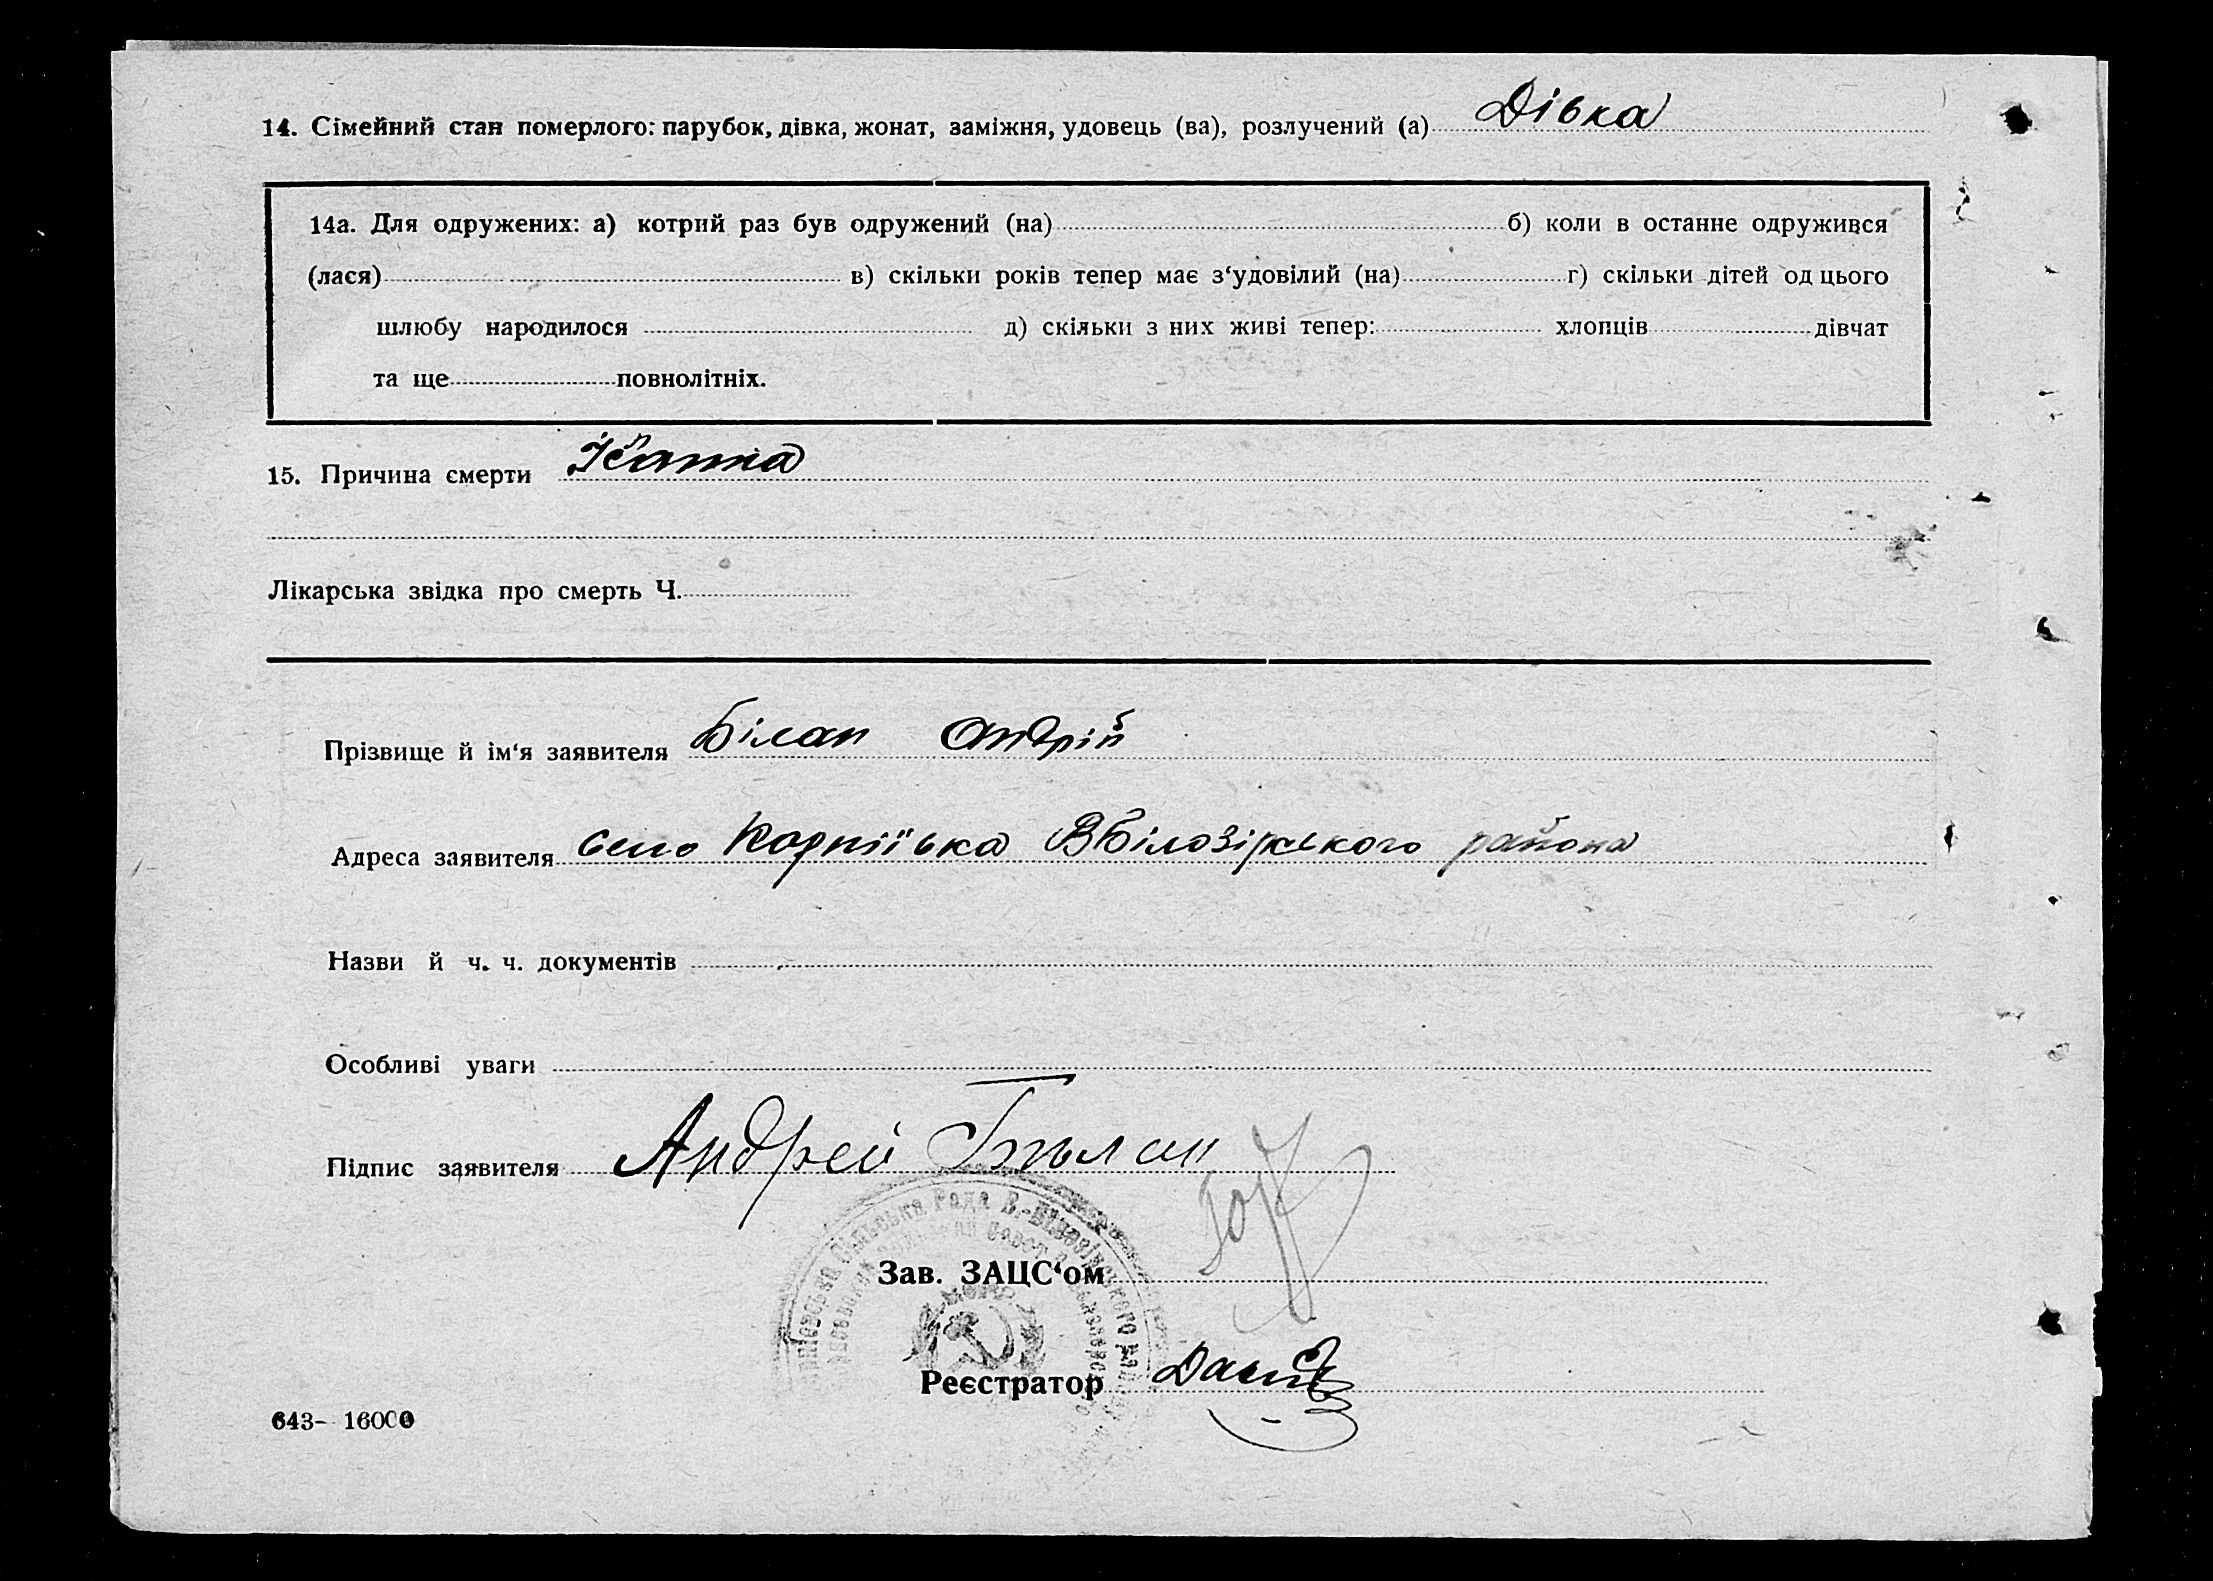 14. Сімейний стан померлого: парубок, дівка, жонат, заміжня, удовець (ва), розлучений (а) Дівка
14а. Для одружених: а) котрий раз був одружений (на) б) коли в останнє одружився
(лася) в) скільки років тепер має з‘удовілий (на) г) скільки дітей од цього
шлюбу народилося д) скільки з них живі тепер: хлопців дівчат
та ще повнолітніх.
15. Причина смерти
Лікарська звідка про смерть Ч.
Прізвище й ім‘я заявителя Білан Андрій
Адреса заявителя село Корніївка ВБілозірського района
Назви й ч. ч. документів
Особливі уваги
Підпис заявителя Андрей Бѣлан
Сільська Рада В.-Білозірського
Зав. ЗАЦС‘ом
Реєстратор
643- 16000